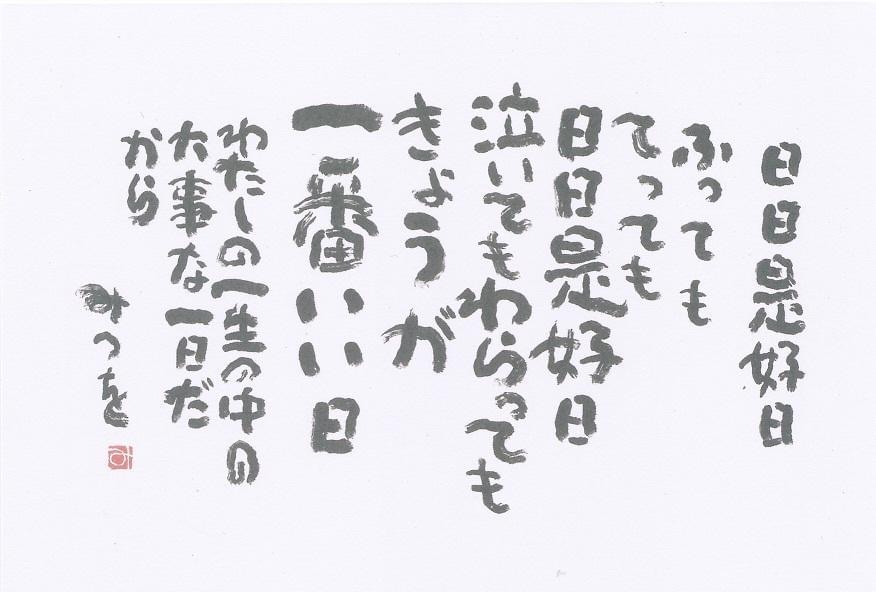 日日是好日
ふっても
てっても
日日是好日
泣いてもわらっても
きょうが
一番いい日
わたしの一生の中の
大事な一日だ
から
みつを
み